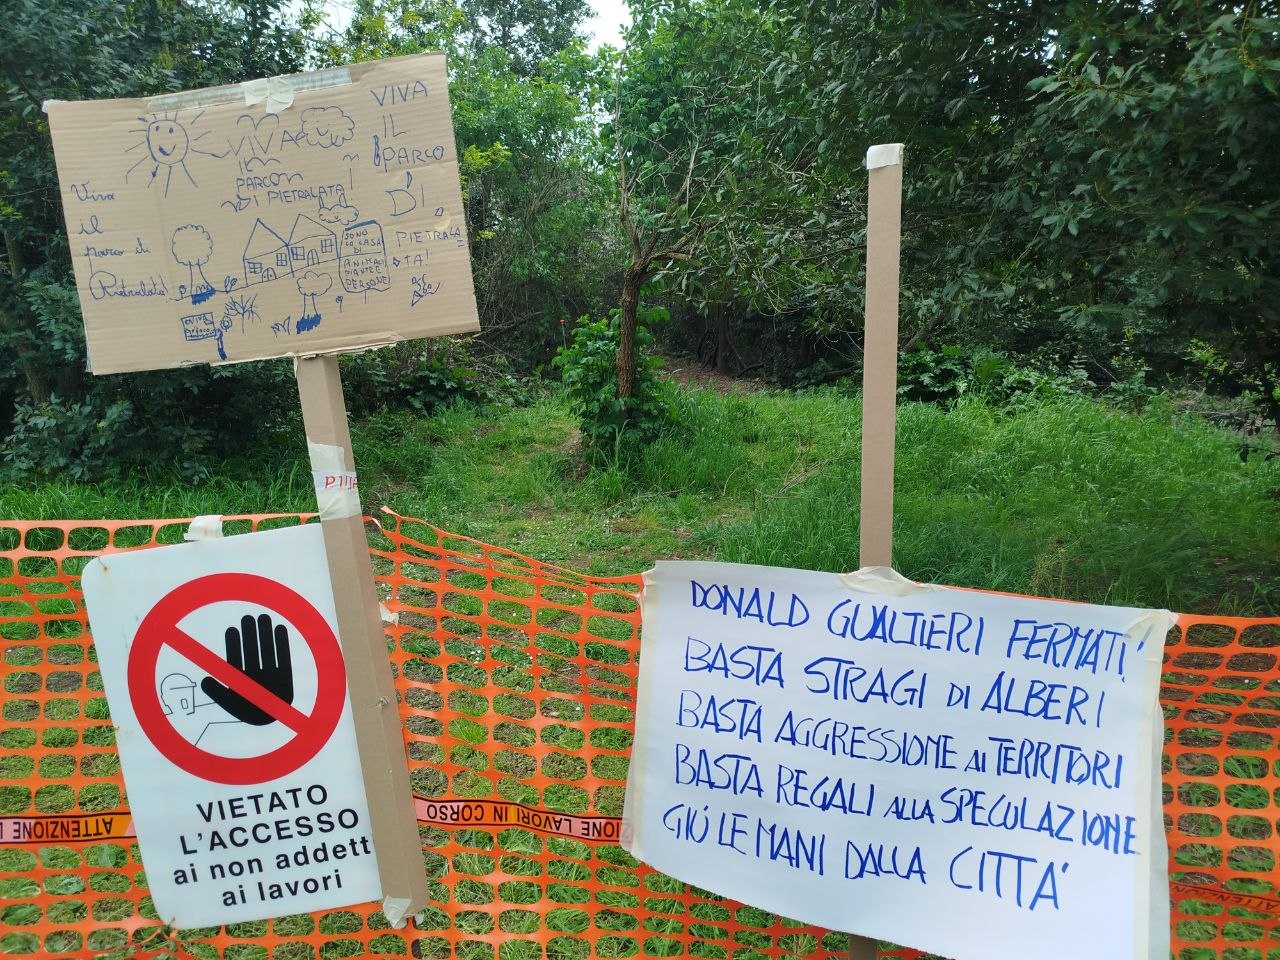 VIVA
IL
PARCO
DI
PIETRALA
TA!
VIVA
IL
PARCO
DI PIETRALATA!
Viva
il
parco di
Pietralata!
SONO
LA CASA
DI
ANIMALI
PIANTE E
PERSONE
VIVA
VIETATO
L'ACCESSO
ai non addett
ai lavori
ATTENZIONE L
ZIONE LAVORI IN CORSO
DONALD GUALTIERI FERMATI!
BASTA STRAGI DI ALBERI
BASTA AGGRESSIONE AI TERRITORI
BASTA REGALI ALLA SPECULAZIONE
GIÚ LE MANI DALLA CITTÀ